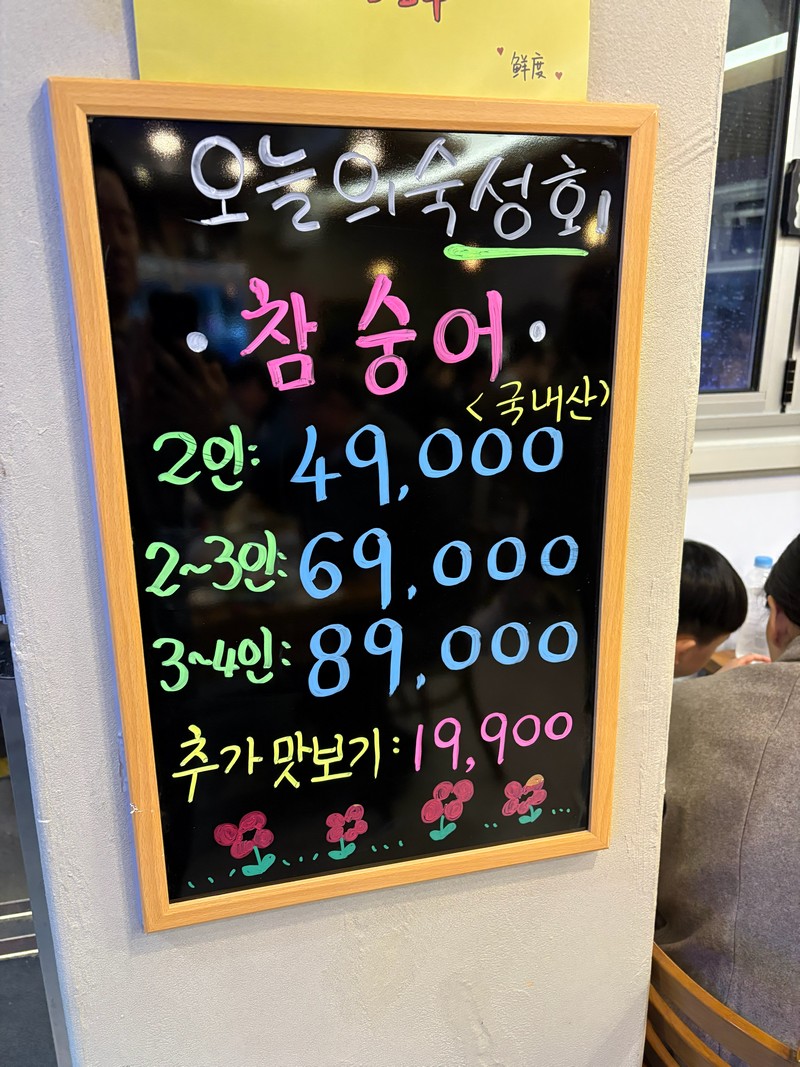 鮮度
오늘의 숙성회
• 참숭어 •
<국내산>
2인: 49,000
2~3인: 69,000
3~4인: 89,000
추가 맛보기: 19,900